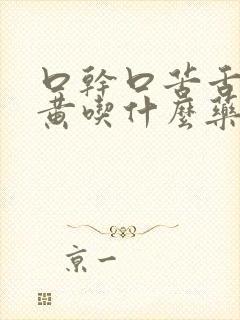 口幹口苦舌
黃喫什麼藥
京一